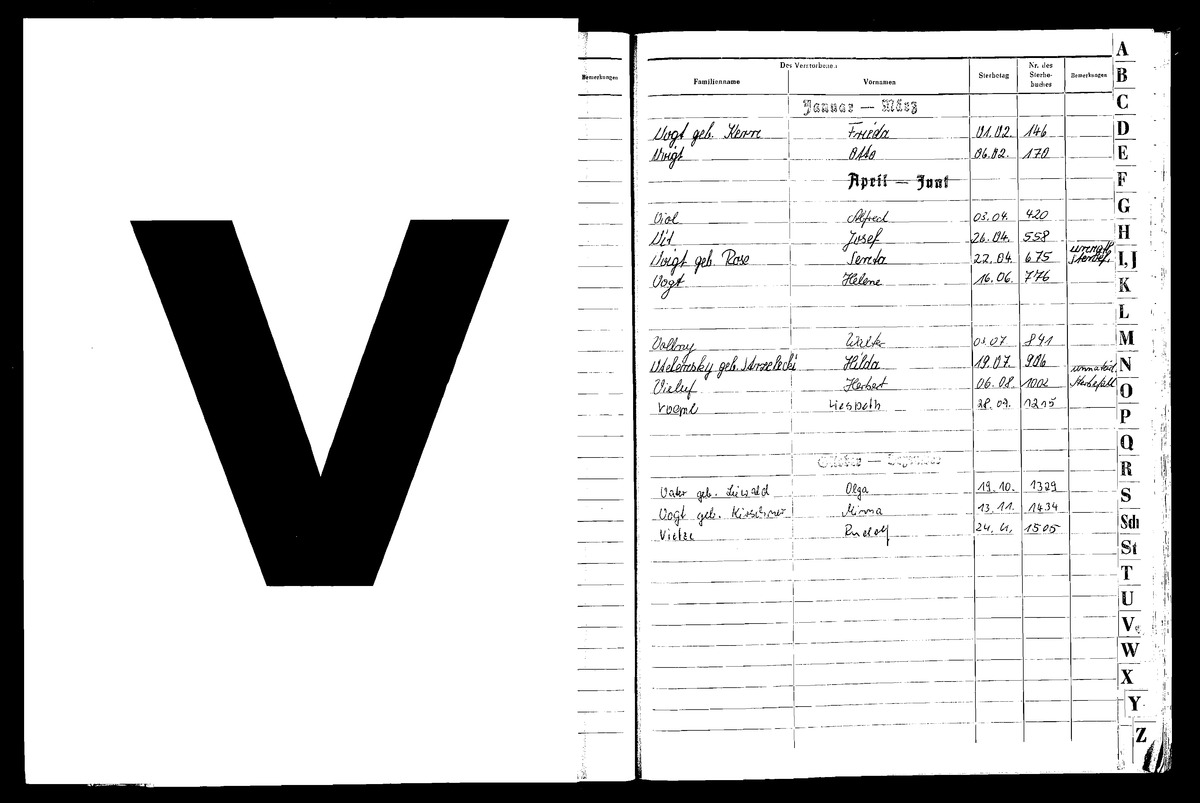 V
Bemerkungen
Des Verstorbenen
Familienname Vornamen Sterbetag Nr. des Sterbe-buches Bemerkungen
Januar — März
Vogt geb. Frieda 01.02. 146
Voigt Otto 06.02. 170
April — Juni
Viol Alfred 03.04. 420
Vit Josef 26.04. 558
Voigt geb. Rose Senta 22.04. 675
Vogt Helene 16.06. 776
07 841
geb. Strzelecki Hilda 19.07. 906
Vieluf Herbert 06.08. 1002 Sterbefall
Liesbeth 28.09. 1215
Oktober — Dezember
Vater geb. Olga 19.10. 1329
Vogt geb. Kirschner Minna 13.11. 1434
Rudolf 24. 1505
A
B
C
D
E
F
G
H
I,J
K
L
M
N
O
P
Q
R
S
Sch
St
T
U
V
W
X
Y
Z